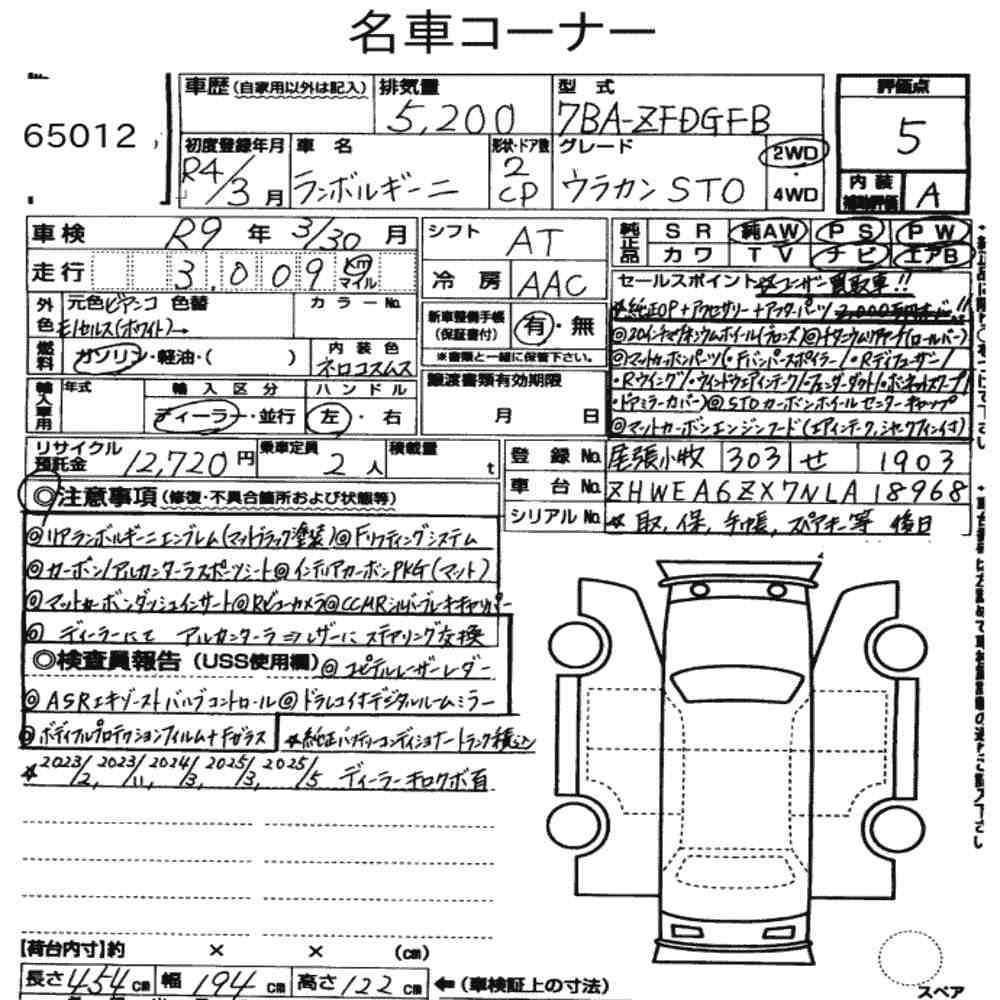 名車コーナー
65012
車歴(自家用以外は記入) 排気量 5,200 型式 7BA-ZFDGFB 評価点 5
初度登録年月 R4/3月 車名 ランボルギーニ 形状・ドア数 2 CP グレード ウラカン STO 2WD・4WD 内装補助評価 A
車検 R9年3/30月 シフト AT 純正品 SR 純AW PS PW
カワ TV ナビ エアB
走行 3,009 km マイル 冷房 AAC セールスポイント ☆ユーザー買取車!!
外色 元色 ビアンコ 色替 カラーNo. 新車整備手帳(保証書付) 有・無 ☆純正OP+アクセサリー+アフターパーツ 2,000万円オーバー!!
モノセルス(ホワイト)→ ※書類と一緒に保管下さい。 ◎20インチマグネシウムホイール(ブロンズ)◎チタニウムリアアーチ(ロールバー)
燃料 ガソリン・軽油・( ) 内装色 ネロコスムス ◎マットカーボンパーツ(・Fバンパースポイラー/・Rディフューザー/
輸入車用 年式 輸入区分 ディーラー・並行 ハンドル 左・右 譲渡書類有効期限 月 日 ・Rウイング/・ウインドウエアインテーク/・フェンダーダクト/・ボンネットスクープ/
・ドアミラーカバー)◎STOカーボンホイールセンターキャップ
◎マットカーボンエンジンフード(エアインテーク,シャークフィン付)
リサイクル預託金 12,720円 乗車定員 2人 積載量 t 登録No. 尾張小牧 303 せ 1903
車台No. ZHWEA6ZX7NLA18968
◎注意事項(修復・不具合箇所および状態等) シリアルNo. ☆取,保,手帳,スペアキー等 後日
◎リアランボルギーニエンブレム(マットブラック塗装)◎Fリフティングシステム
◎カーボン/アルカンターラスポーツシート◎インテリアカーボンPKG(マット)
◎マットカーボンダッシュインサート◎Rビューカメラ◎CCMRシルバーブレーキキャリパー
◎ディーラーにて アルカンターラ⇒レザーに ステアリング交換
◎検査員報告(USS使用欄)◎ユピテルレーザーレーダー
◎ASRエキゾーストバルブコントロール◎ドラレコ付デジタルルームミラー
◎ボディフルプロテクションフィルム+Fガラス ☆純正バッテリーコンディショナー トランク積込
☆2023/2, 2023/11, 2024/3, 2025/3, 2025/5 ディーラーキロクボ有
【荷台内寸】約 × × (cm)
長さ 454cm 幅 194cm 高さ 122cm ←(車検証上の寸法)
スペア